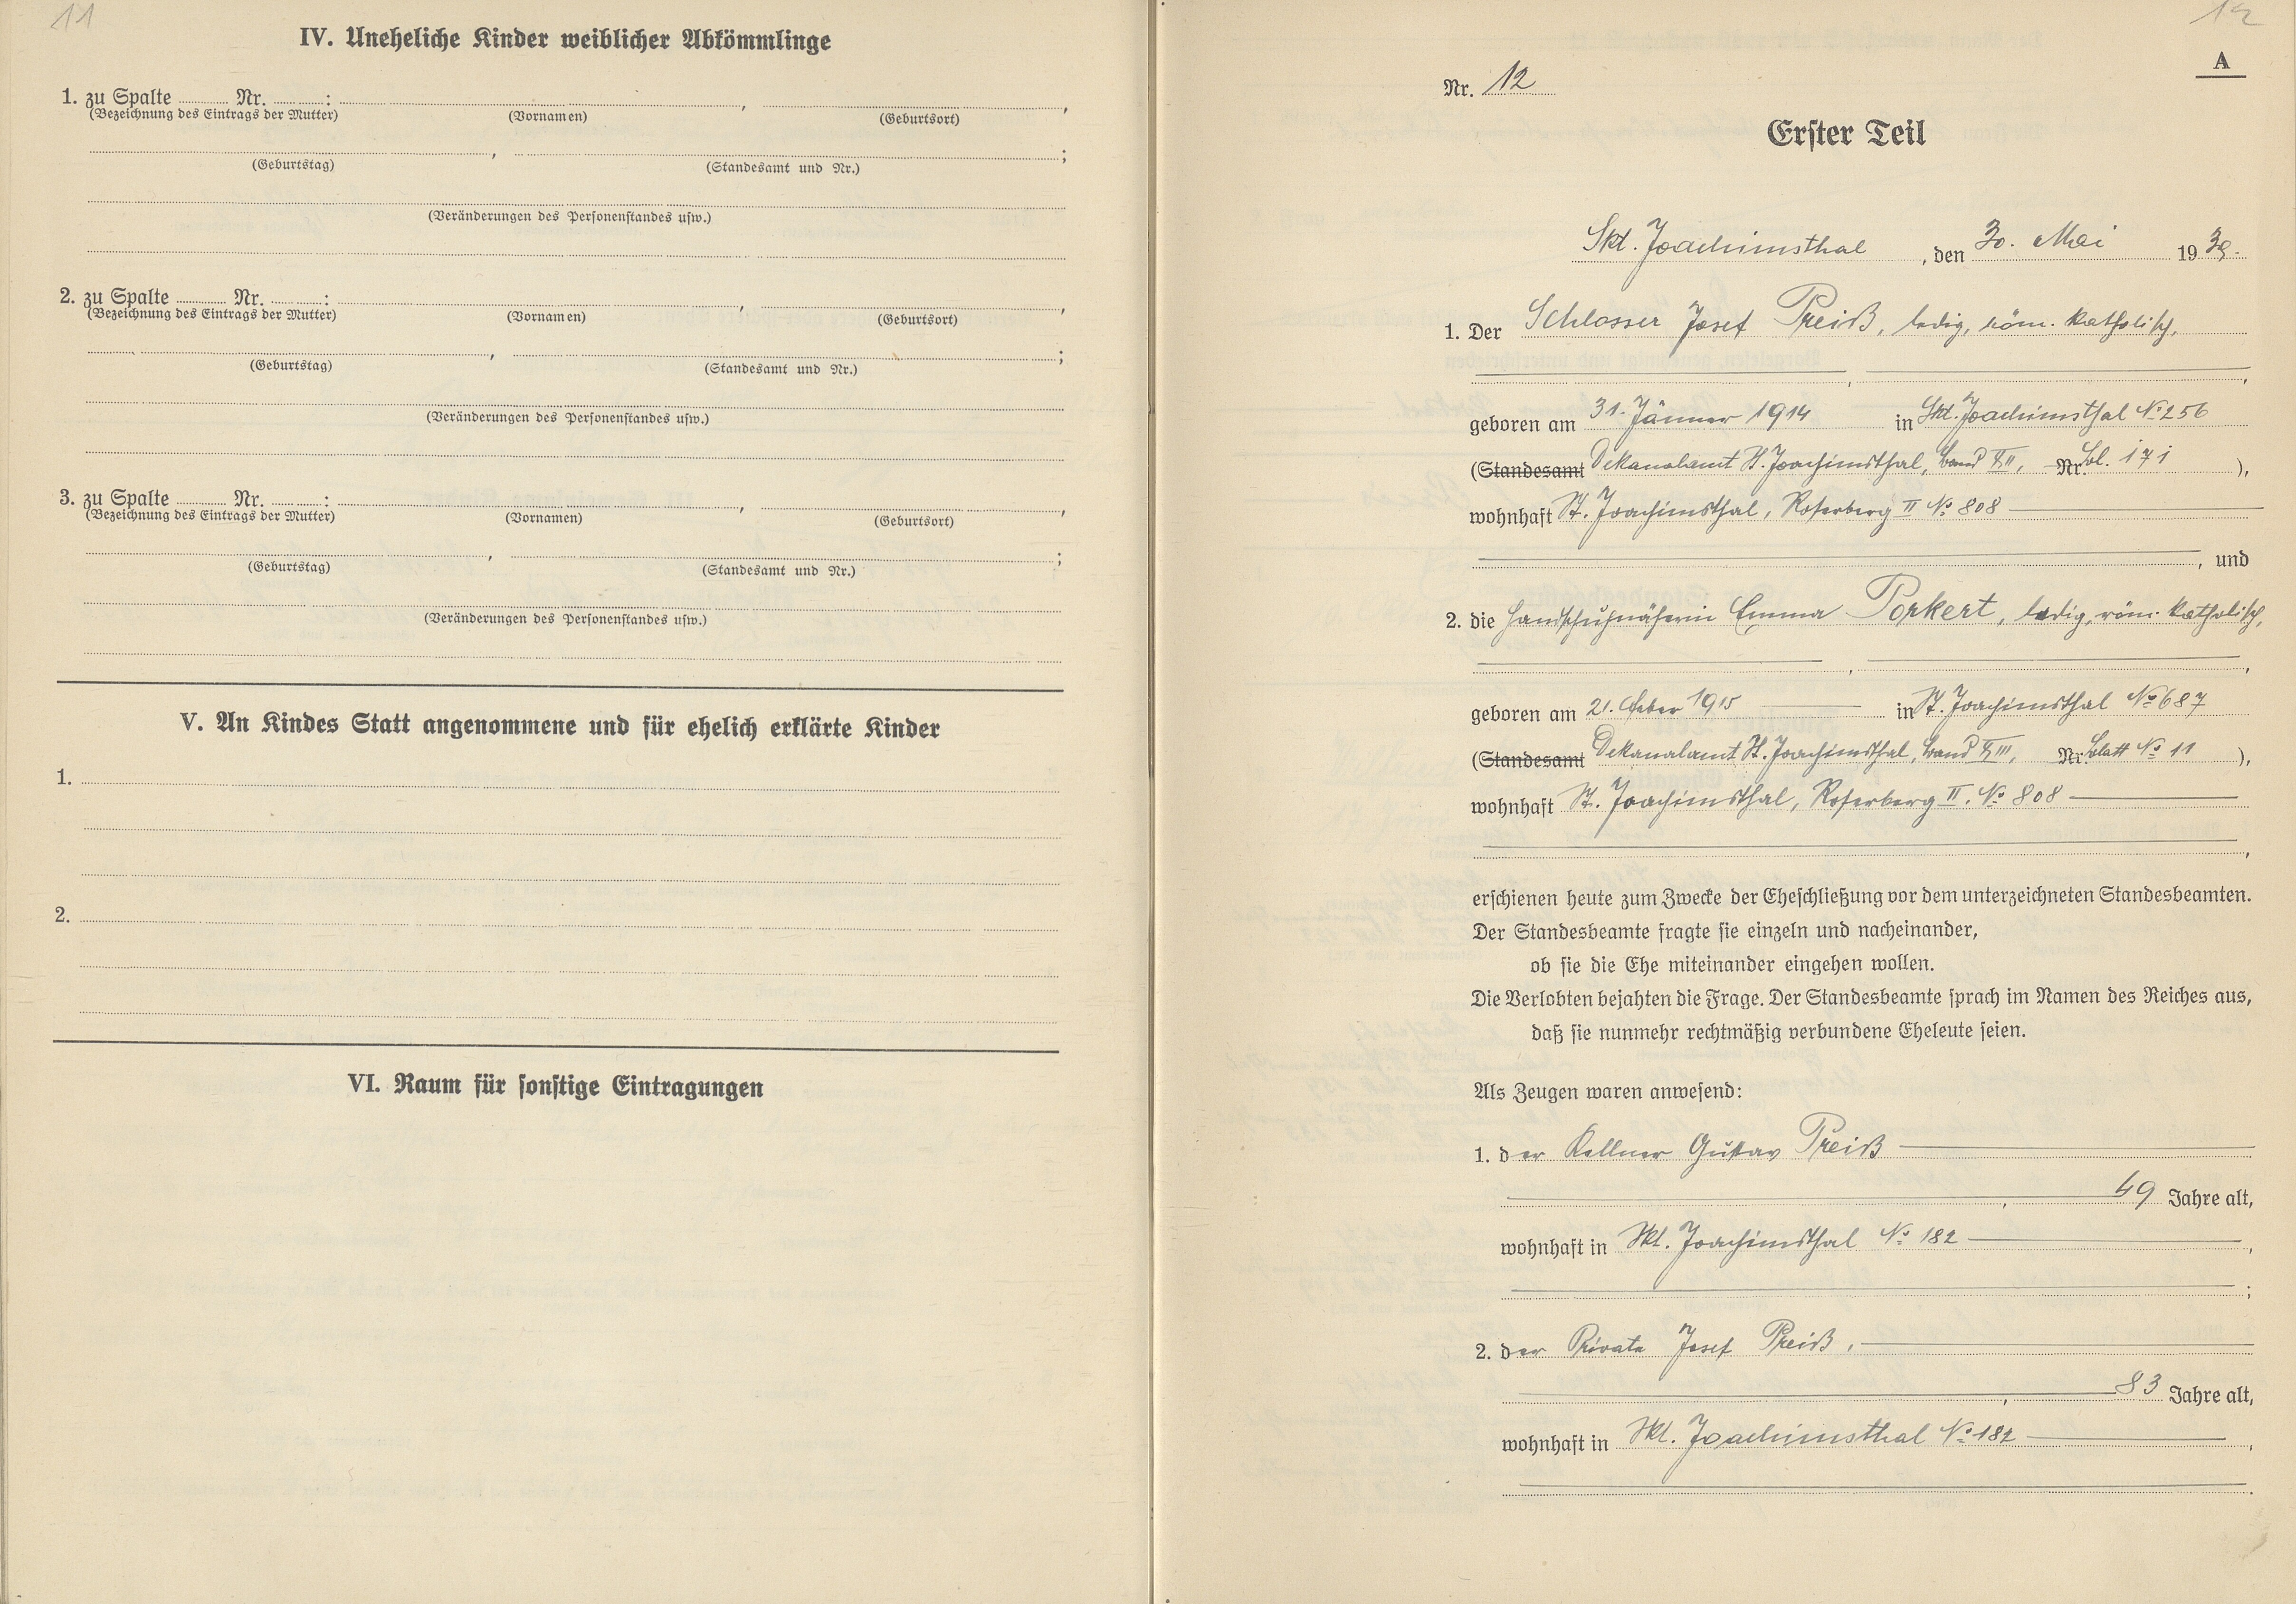 11
IV. Uneheliche Kinder weiblicher Abkömmlinge
1. zu Spalte Nr. : , ,
(Bezeichnung des Eintrags der Mutter) (Vornamen) (Geburtsort)
, ;
(Geburtstag) (Standesamt und Nr.)
(Veränderungen des Personenstandes usw.)
2. zu Spalte Nr. : , ,
(Bezeichnung des Eintrags der Mutter) (Vornamen) (Geburtsort)
, ;
(Geburtstag) (Standesamt und Nr.)
(Veränderungen des Personenstandes usw.)
3. zu Spalte Nr. : , ,
(Bezeichnung des Eintrags der Mutter) (Vornamen) (Geburtsort)
, ;
(Geburtstag) (Standesamt und Nr.)
(Veränderungen des Personenstandes usw.)
V. An Kindes Statt angenommene und für ehelich erklärte Kinder
1.
2.
VI. Raum für sonstige Eintragungen
12
A
Nr. 12
Erster Teil
Skt. Joachimsthal, den 30. Mai 1939.
1. Der Schlosser Josef Preiß, ledig, röm. katholisch,
, ,
geboren am 31. Jänner 1914 in Skt. Joachimsthal No 256
(Standesamt Dekanalamt St. Joachimsthal, Band Nr. Bl. 171),
wohnhaft St. Joachimsthal, Roserberg II No 808
, und
2. die Handschuhnäherin Emma Porkert, ledig, röm. katholisch,
, ,
geboren am 21. Feber 1915 in St. Joachimsthal No 687
(Standesamt Dekanalamt St. Joachimsthal, Band Nr. Blatt No 11),
wohnhaft St. Joachimsthal, Roserberg II. No 808
,
erschienen heute zum Zwecke der Eheschließung vor dem unterzeichneten Standesbeamten.
Der Standesbeamte fragte sie einzeln und nacheinander,
ob sie die Ehe miteinander eingehen wollen.
Die Verlobten bejahten die Frage. Der Standesbeamte sprach im Namen des Reiches aus,
daß sie nunmehr rechtmäßig verbundene Eheleute seien.
Als Zeugen waren anwesend:
1. der Kellner Gustav Preiß
, 49 Jahre alt,
wohnhaft in Skt. Joachimsthal No 182,
;
2. der Private Josef Preiß,
, 83 Jahre alt,
wohnhaft in Skt. Joachimsthal No 182,
.